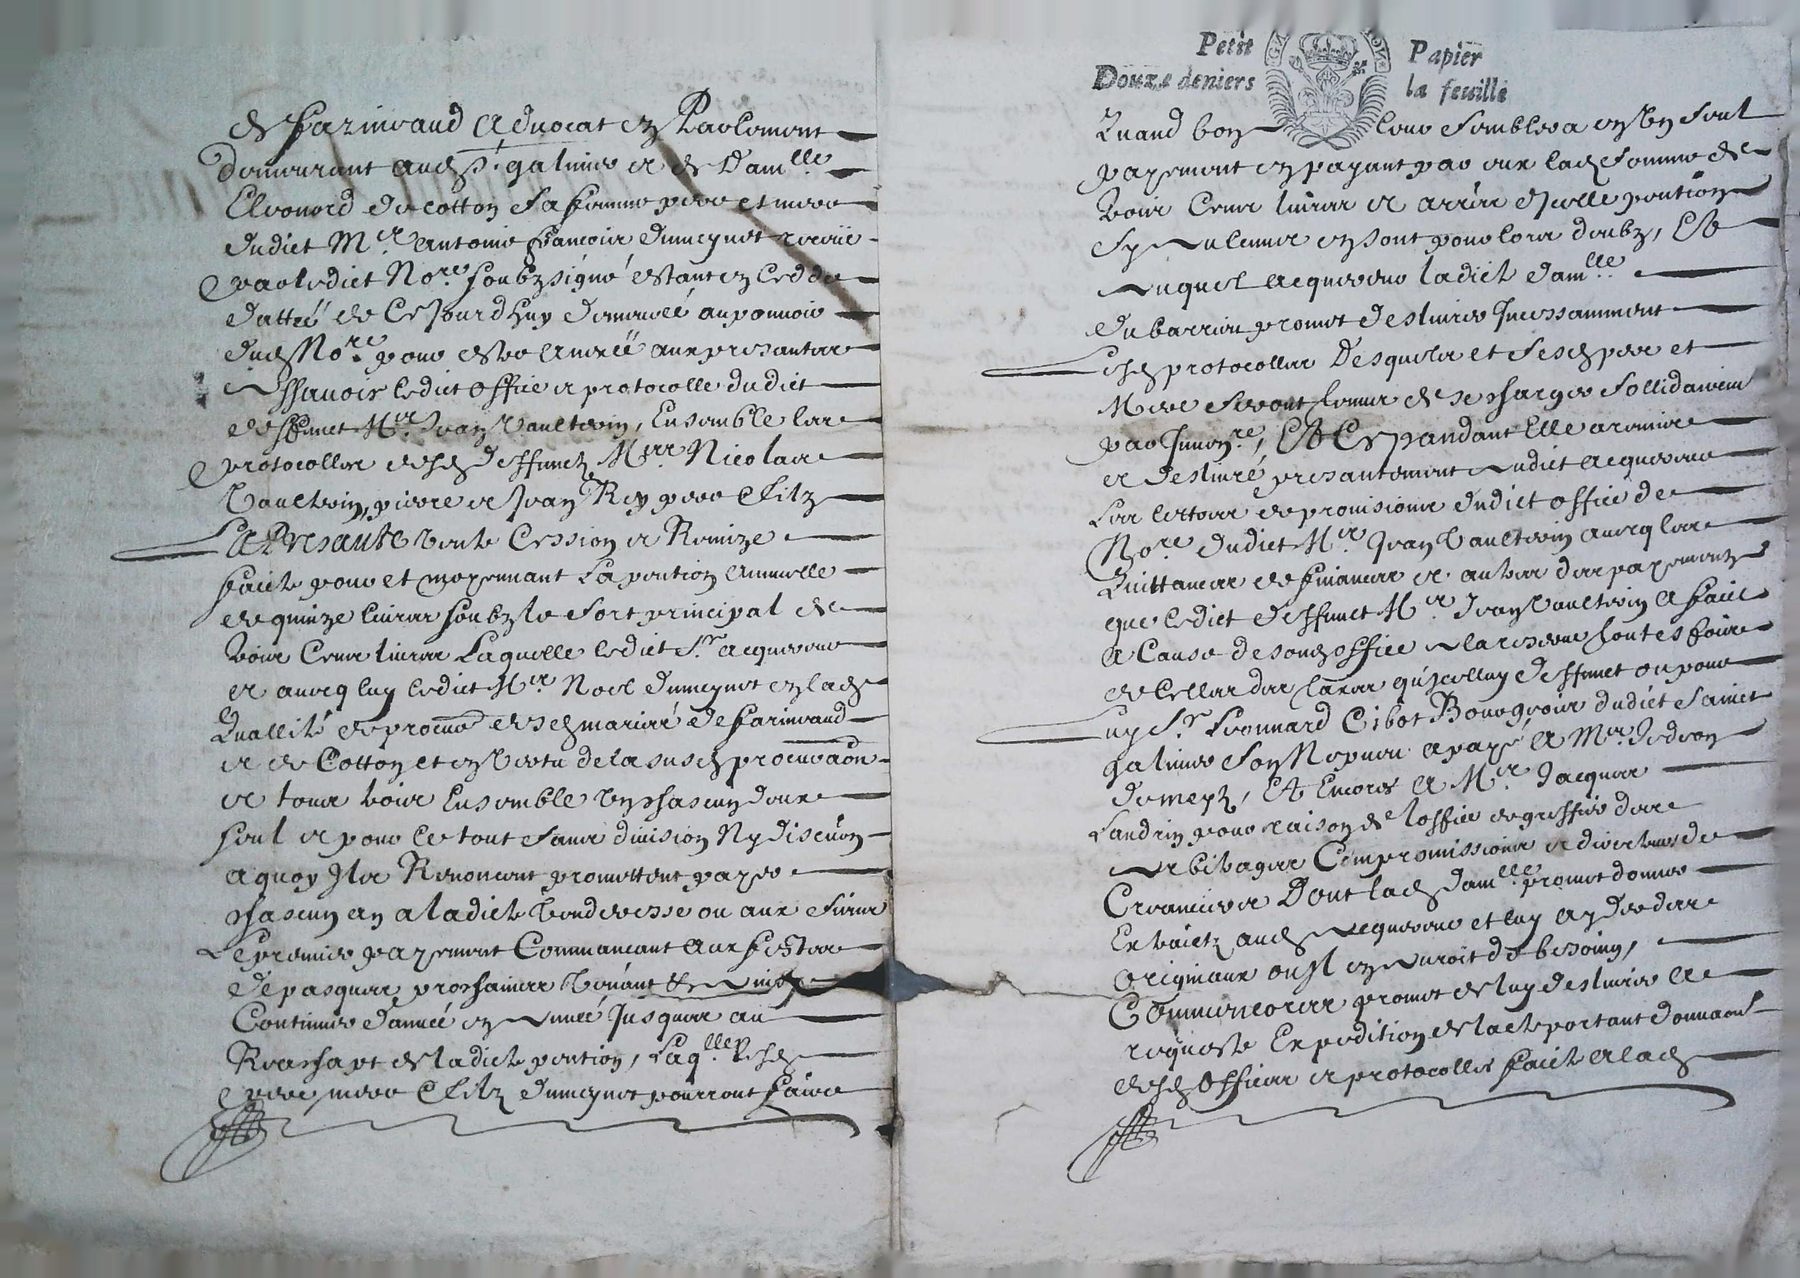 de farineaud Advocat en Parlement
demeurant aud. St. galmier et de Dam.lle
Eleonord de cotton sa femme pere et mere
dudict M.re Antoine françois dumeynet receue
par ledict No.re soubzsigné estant en ced de
dattee de Ce Jourd'huy demeuree au pouvoir
dud. No.re pour estre aux presantes
assavoir ledict office et protocolle dudict
deffunct M.re Jean Vaultrin, Ensemble les
protocolles desd. deffunctz M.res Nicolas
Vaultrin, pierre et Jean Rey pere & filz
La Presante vente Cession et Remize
faicte pour et moyennant La pention annuelle
de quinze livres soubz le sort principal de
trois Cens livres Laquelle ledict S.r acquereur
et avecq luy ledict M.re Noel dumeynet en lad.
Quallité de procur. desd. mariés de farineaud
et de Cotton et en Vertu de la susd. procuraon
et tous trois Ensemble Un chascun deux
seul et pour le tout sans division Ny discution
a quoy Ilz Renoncent promettent payer
chascun an a ladicte Venderesse ou aux siens
Le premier payement Commancant aux festes
de pasques prochaines Venant & ainsy
Continuer d'année en année Jusques au
Reachapt de ladicte pention, Laq.lle lesd.
pere, mere & filz dumeynet pourront faire
Petit Papier
Douze deniers la feuille
Quand bon leur semblera en Un seul
payement en payant par eux lad. somme de
trois Cens livres et arrier. d'icelle pention
sy aulcuns en sont pour lors deubz, Et
auquel acquereur ladicte dam.lle
du barriou promet deslivrer Incessamment
lesd. protocolles desquelz et sesd. pere et
Mere seront tenus de se charger sollidairem
par Inven.re, Et Cependant Elle a remis
et deslivré presantement audict acquereur
Les lettres de provisions dudict office de
No.re dudict M.re Jean Vaultrin avecq les
Quittances de finances et autres des payementz
que ledict deffunct M.re Jean Vaultrin a faict
a Cause de sond. office a la reserve touttesfois
de Celles des taxes qu'icelluy deffunct ou pour
luy S.r Leonnard Cibot Bourgeois dudict Sainct
galmier son Nepveu a payé a M.re Gedeon
dumeys, Et Encores a M.re Jacques
Landrin pour raison de l'office de greffier des
arbitrages Compromissions et directions de
Creanciers Dont lad. Dam.lle promet donner
Extraictz aud. acquereur et luy ayder des
originaux ou Il en auroit de besoing,
Comm encores promet de luy deslivrer a
requeste Expedition de l'acte portant donnaon
desd. offices et protocolles faicte a lad.